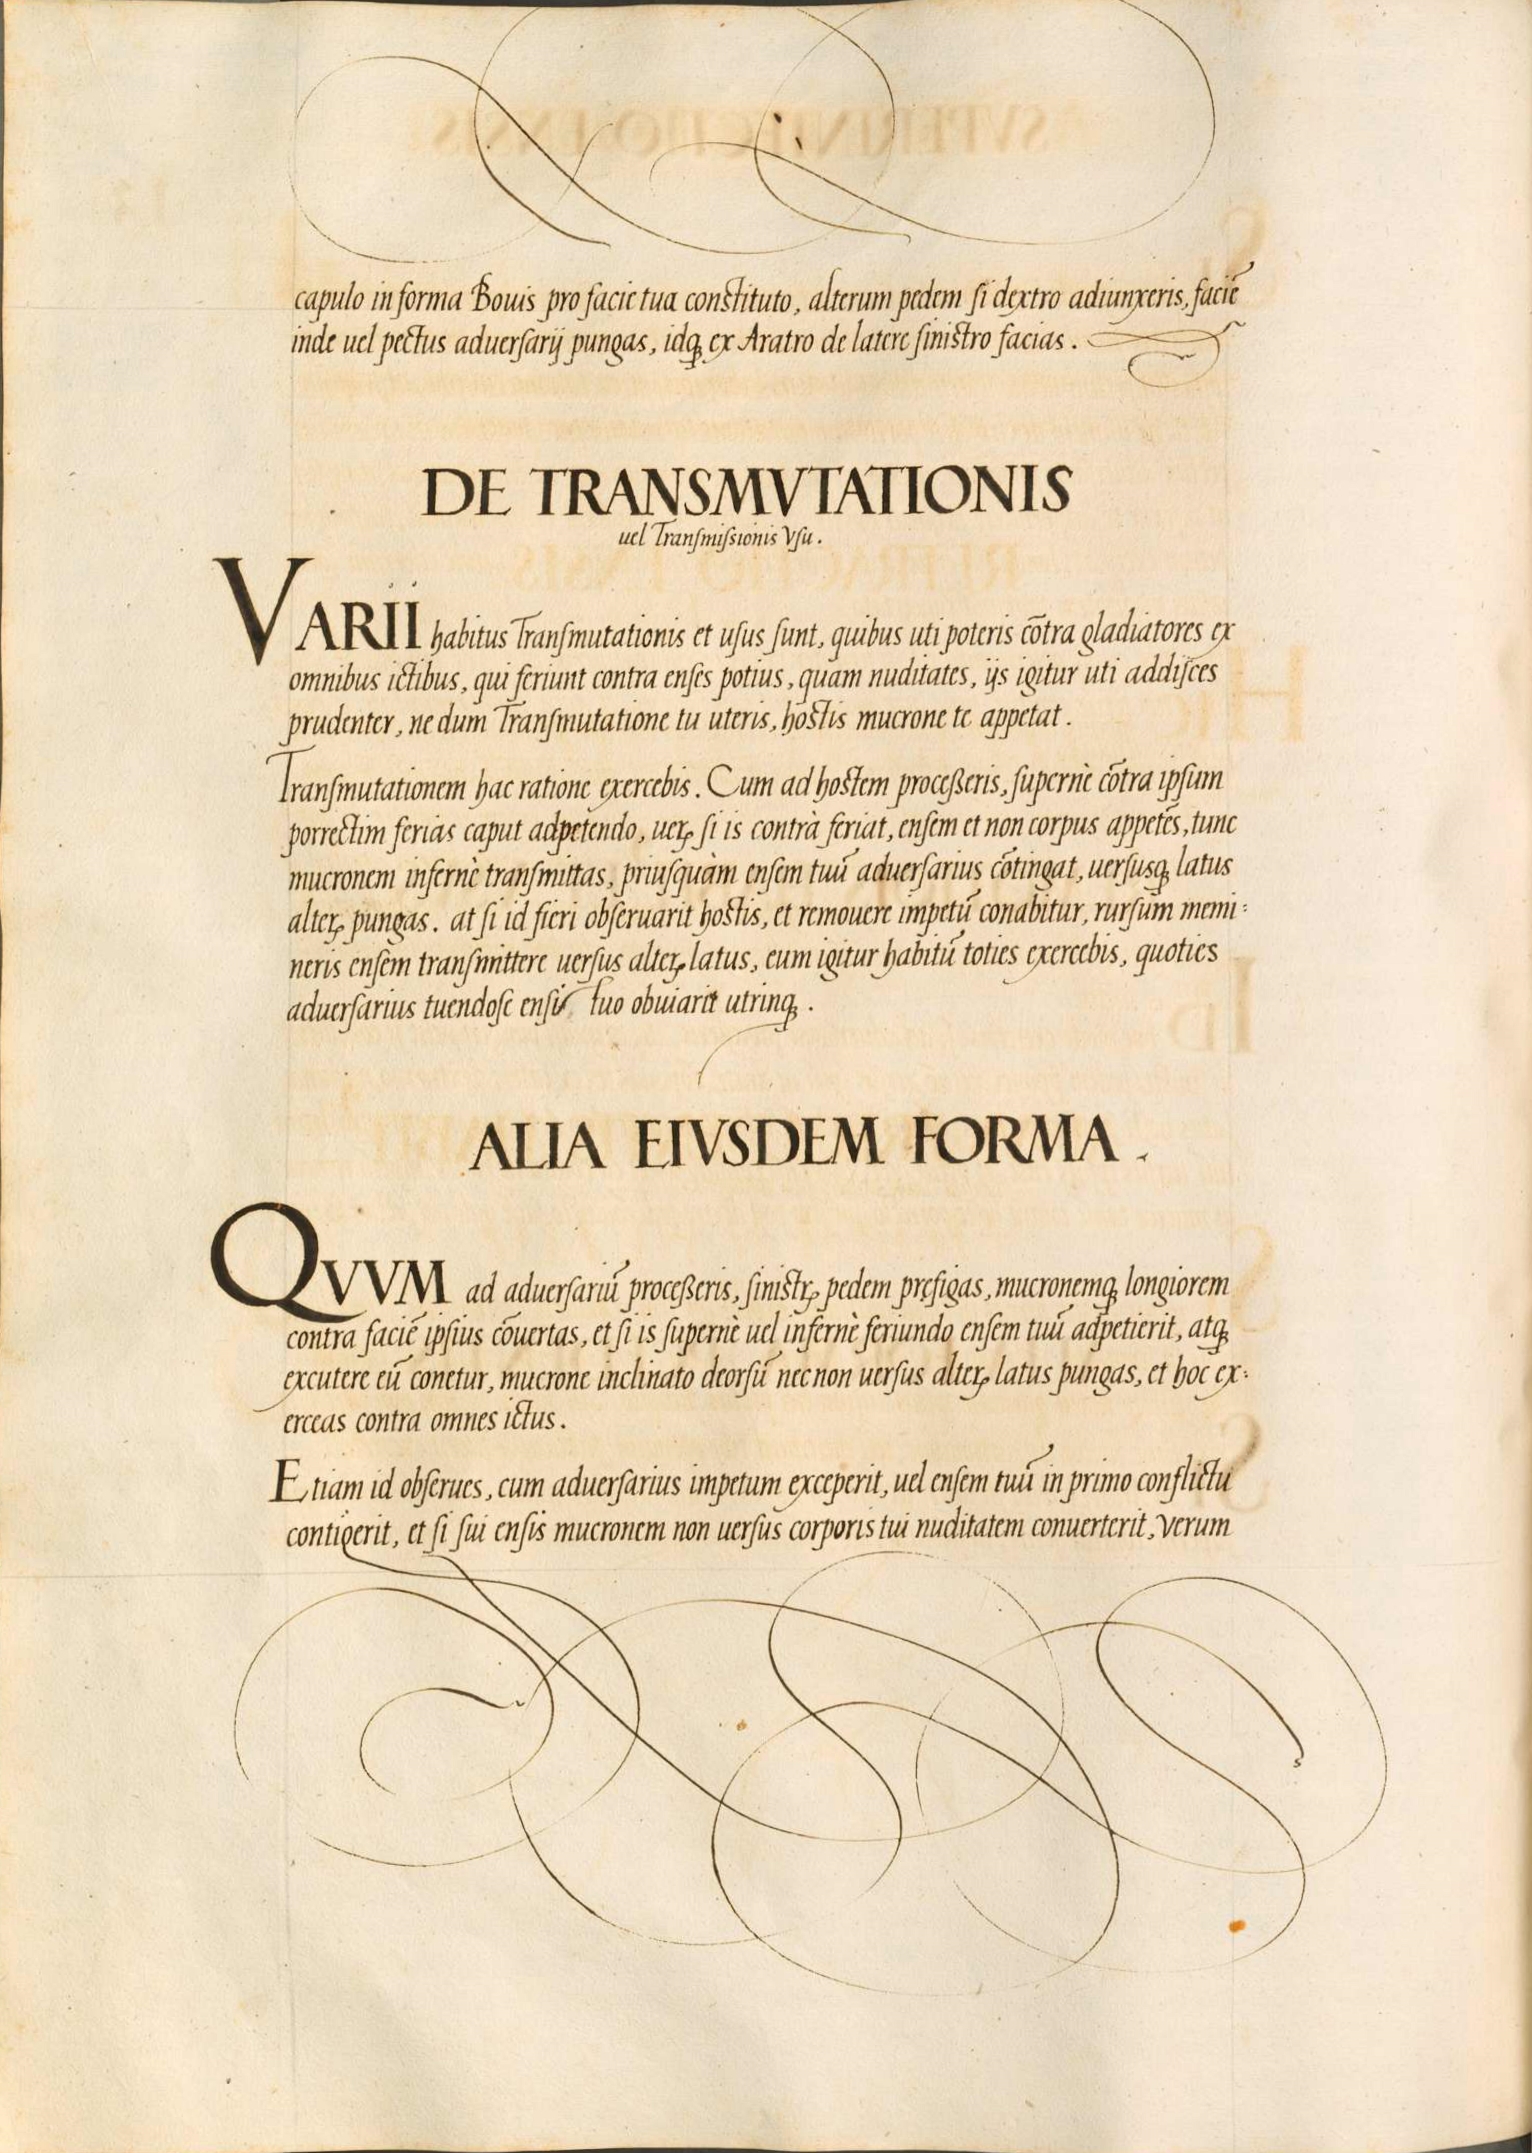 capulo in forma Bouis pro facie tua constituto, alterum pedem si dextro adiunxeris, faciē
inde uel pectus aduersarij pungas, idq̃ ex Aratro de latere sinistro facias.
DE TRANSMVTATIONIS
uel Transmissionis Vsu.
VARII habitus Transmutationis et usus sunt, quibus uti poteris cōtra gladiatores ex
omnibus ictibus, qui feriunt contra enses potius, quam nuditates, ijs igitur uti addisces
prudenter, ne dum Transmutatione tu uteris, hostis mucrone te appetat.
Transmutationem hac ratione exercebis. Cum ad hostem proceßeris, supernè cōtra ipsum
porrectim ferias caput adpetendo, ueꝝ si is contrà feriat, ensem et non corpus appetēs, tunc
mucronem infernè transmittas, priusquàm ensem tuū aduersarius cōtingat, uersusq̃ latus
alteꝝ pungas. at si id fieri obseruarit hostis, et remouere impetū conabitur, rursum memi:
neris ensem transmittere uersus alteꝝ latus, eum igitur habitū toties exercebis, quoties
aduersarius tuendose ensi tuo obuiarit utrinq̃.
ALIA EIVSDEM FORMA.
QVVM ad aduersariū proceßeris, sinistꝝ pedem pręfigas, mucronemq̃ longiorem
contra faciē ipsius cōuertas, et si is supernè uel infernè feriundo ensem tuū adpetierit, atq̃
excutere eū conetur, mucrone inclinato deorsū necnon uersus alteꝝ latus pungas, et hoc ex:
erceas contra omnes ictus.
Etiam id obserues, cum aduersarius impetum exceperit, uel ensem tuū in primo conflictu
contigerit, et si sui ensis mucronem non uersus corporis tui nuditatem conuerterit, verum